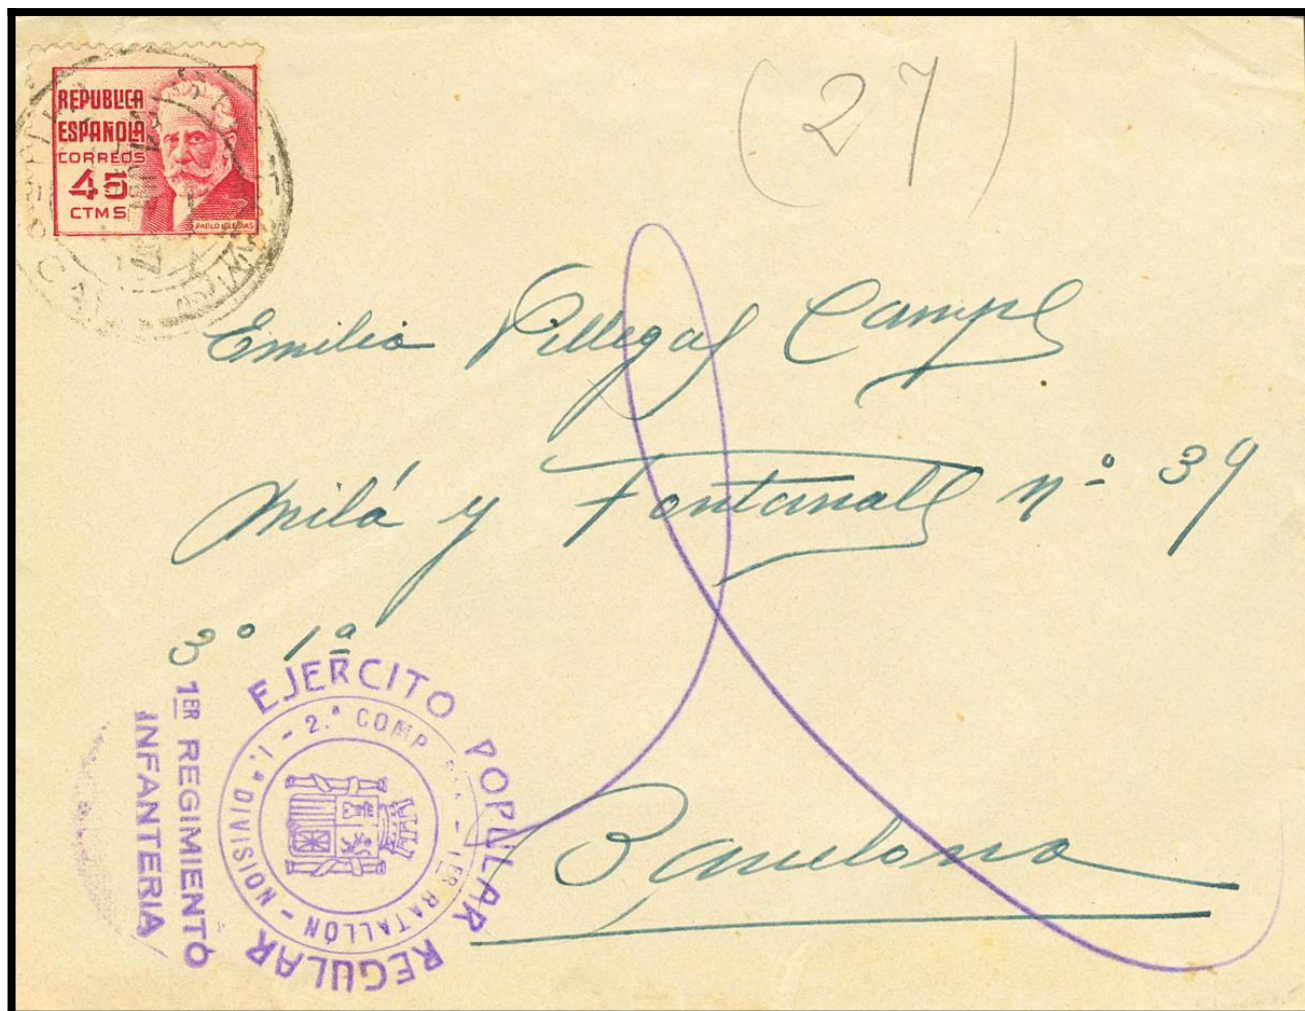 REPUBLICA
ESPAÑOLA
CORREOS
45
CTMS
PABLO IGLESIAS
(27)
Emilio Villegas Camps
Milá y Fontanals nº 39
3º 1ª
Barcelona
EJERCITO POPULAR REGULAR
1.ª DIVISION - 1 - 2.ª COMP - 1ER BATALLÓN -
1ER REGIMIENTO
INFANTERIA